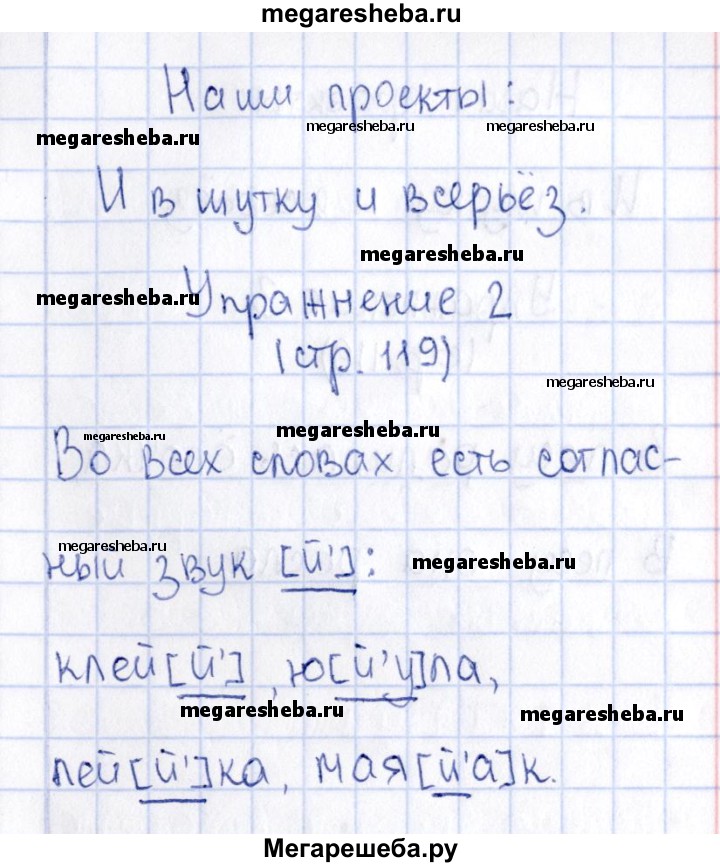 megaresheba.ru
Наши проекты:
megaresheba.ru
megaresheba.ru
megaresheba.ru
И в шутку и всерьёз.
megaresheba.ru
megaresheba.ru
Упражнение 2
(стр. 119)
megaresheba.ru
megaresheba.ru
megaresheba.ru
Во всех словах есть соглас-
megaresheba.ru
ный звук [й']:
megaresheba.ru
клей[й'], ю[й'у]ла,
megaresheba.ru
megaresheba.ru
лей[й']ка, мая[й'а]к.
Мегарешеба.ру